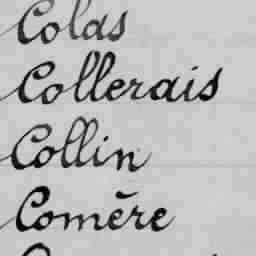 Colas
Collerais
Collin
Comère